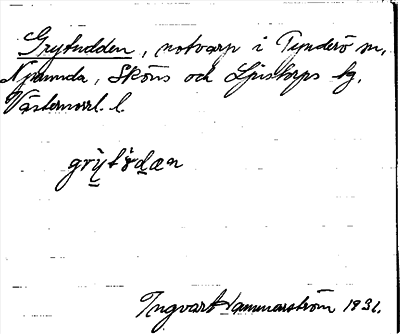 Grytudden, notvarp i Tynderö sn,
Njurunda, Sköns och Ljustorps tg,
Västernorrl. l.
Ingvart Hammarström 1931.